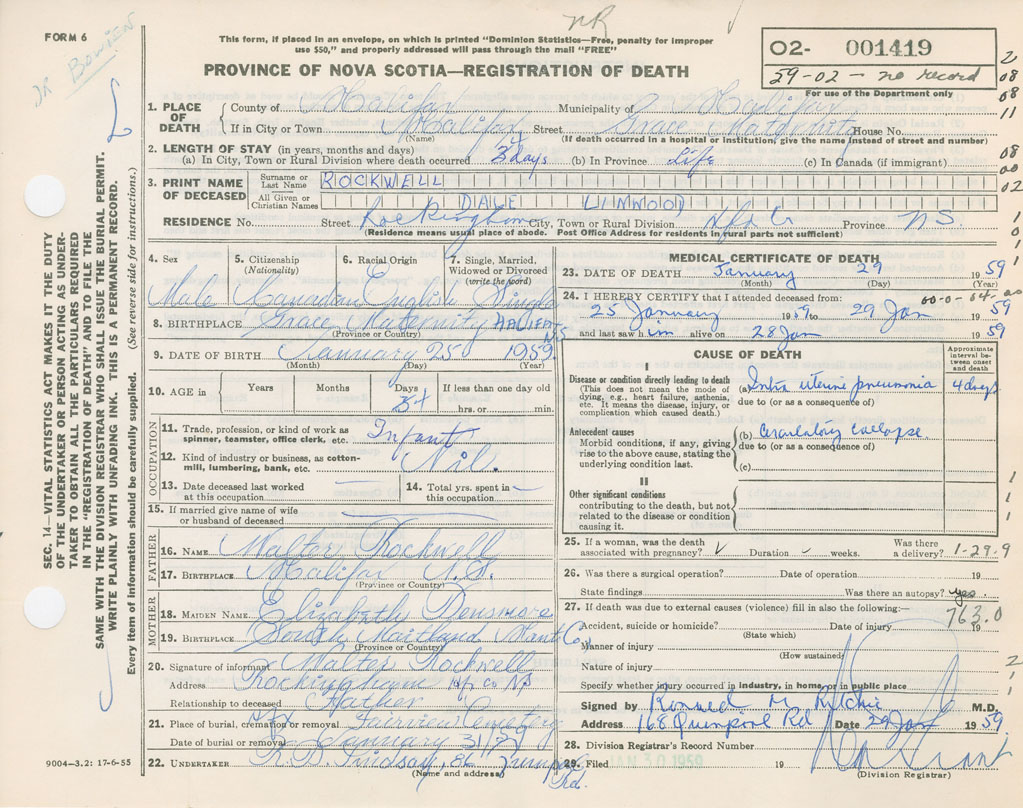 FORM 6
DR BOWIEN
nR
This form, if placed in an envelope, on which is printed "Dominion Statistics—Free, penalty for improper
use $50," and properly addressed will pass through the mail "FREE"
PROVINCE OF NOVA SCOTIA—REGISTRATION OF DEATH
02- 001419
59-02 - no record
For use of the Department only
1. PLACE OF DEATH
County of Halifax Municipality of Halifax
If in City or Town Halifax Street Grace Maternity House No.
(Name) (If death occurred in a hospital or institution, give the name instead of street and number)
2. LENGTH OF STAY (in years, months and days)
(a) In City, Town or Rural Division where death occurred 3 days (b) In Province Life (c) In Canada (if immigrant)
3. PRINT NAME OF DECEASED
Surname or Last Name ROCKWELL
All Given or Christian Names DALE LINWOOD
RESIDENCE No. Street Rockingham City, Town or Rural Division Hfx Co Province N.S.
(Residence means usual place of abode. Post Office Address for residents in rural parts not sufficient)
4. Sex 5. Citizenship (Nationality) 6. Racial Origin 7. Single, Married, Widowed or Divorced (write the word)
Male Canadian English Single
8. BIRTHPLACE Grace Maternity HALIFAX NS
(Province or Country)
9. DATE OF BIRTH January 25 1959
(Month) (Day) (Year)
10. AGE in Years Months Days If less than one day old
3+ hrs. or min.
OCCUPATION
11. Trade, profession, or kind of work as spinner, teamster, office clerk, etc. Infant
12. Kind of industry or business, as cotton-mill, lumbering, bank, etc. Nil.
13. Date deceased last worked at this occupation 14. Total yrs. spent in this occupation
15. If married give name of wife or husband of deceased
FATHER
16. NAME Walter Rockwell
17. BIRTHPLACE Halifax N.S.
(Province or Country)
MOTHER
18. MAIDEN NAME Elizabeth Densmore
19. BIRTHPLACE South Maitland Hants Co
(Province or Country)
20. Signature of informant Walter Rockwell
Address Rockingham Hfx Co NS
Relationship to deceased Father
21. Place of burial, cremation or removal Hfx Fairview Cemetery
Date of burial or removal January 31/59
22. UNDERTAKER
(Name and address)
MEDICAL CERTIFICATE OF DEATH
23. DATE OF DEATH January 29 1959
(Month) (Day) (Year)
24. I HEREBY CERTIFY that I attended deceased from:
25 January 1959 to 29 Jan 1959
and last saw him alive on 28 Jan 1959
CAUSE OF DEATH
Approximate interval between onset and death
I
Disease or condition directly leading to death (a) Intra uterine pneumonia 4 days
(This does not mean the mode of dying, e.g., heart failure, asthenia, etc. It means the disease, injury, or complication which caused death.)
due to (or as a consequence of)
Antecedent causes (b) Circulatory collapse
Morbid conditions, if any, giving rise to the above cause, stating the underlying condition last.
due to (or as a consequence of)
(c)
II
Other significant conditions
contributing to the death, but not related to the disease or condition causing it.
25. If a woman, was the death associated with pregnancy? Duration weeks. Was there a delivery? 1-29-9
26. Was there a surgical operation? Date of operation 19
State findings Was there an autopsy? yes
27. If death was due to external causes (violence) fill in also the following:— 763.0
Accident, suicide or homicide? Date of injury 19
(State which)
Manner of injury
(How sustained)
Nature of injury
Specify whether injury occurred in industry, in home, or in public place
Signed by Ronald M Ritchie M.D.
Address 168 Quinpool Rd Date 29 Jan 1959
28. Division Registrar's Record Number
29. Filed JAN 30 1959 19
(Division Registrar)
SEC. 14—VITAL STATISTICS ACT MAKES IT THE DUTY
OF THE UNDERTAKER OR PERSON ACTING AS UNDER-
TAKER TO OBTAIN ALL THE PARTICULARS REQUIRED
IN THE "REGISTRATION OF DEATH" AND TO FILE THE
SAME WITH THE DIVISION REGISTRAR WHO SHALL ISSUE THE BURIAL PERMIT.
WRITE PLAINLY WITH UNFADING INK. THIS IS A PERMANENT RECORD.
Every item of information should be carefully supplied. (See reverse side for instructions.)
9004-3.2: 17-6-55